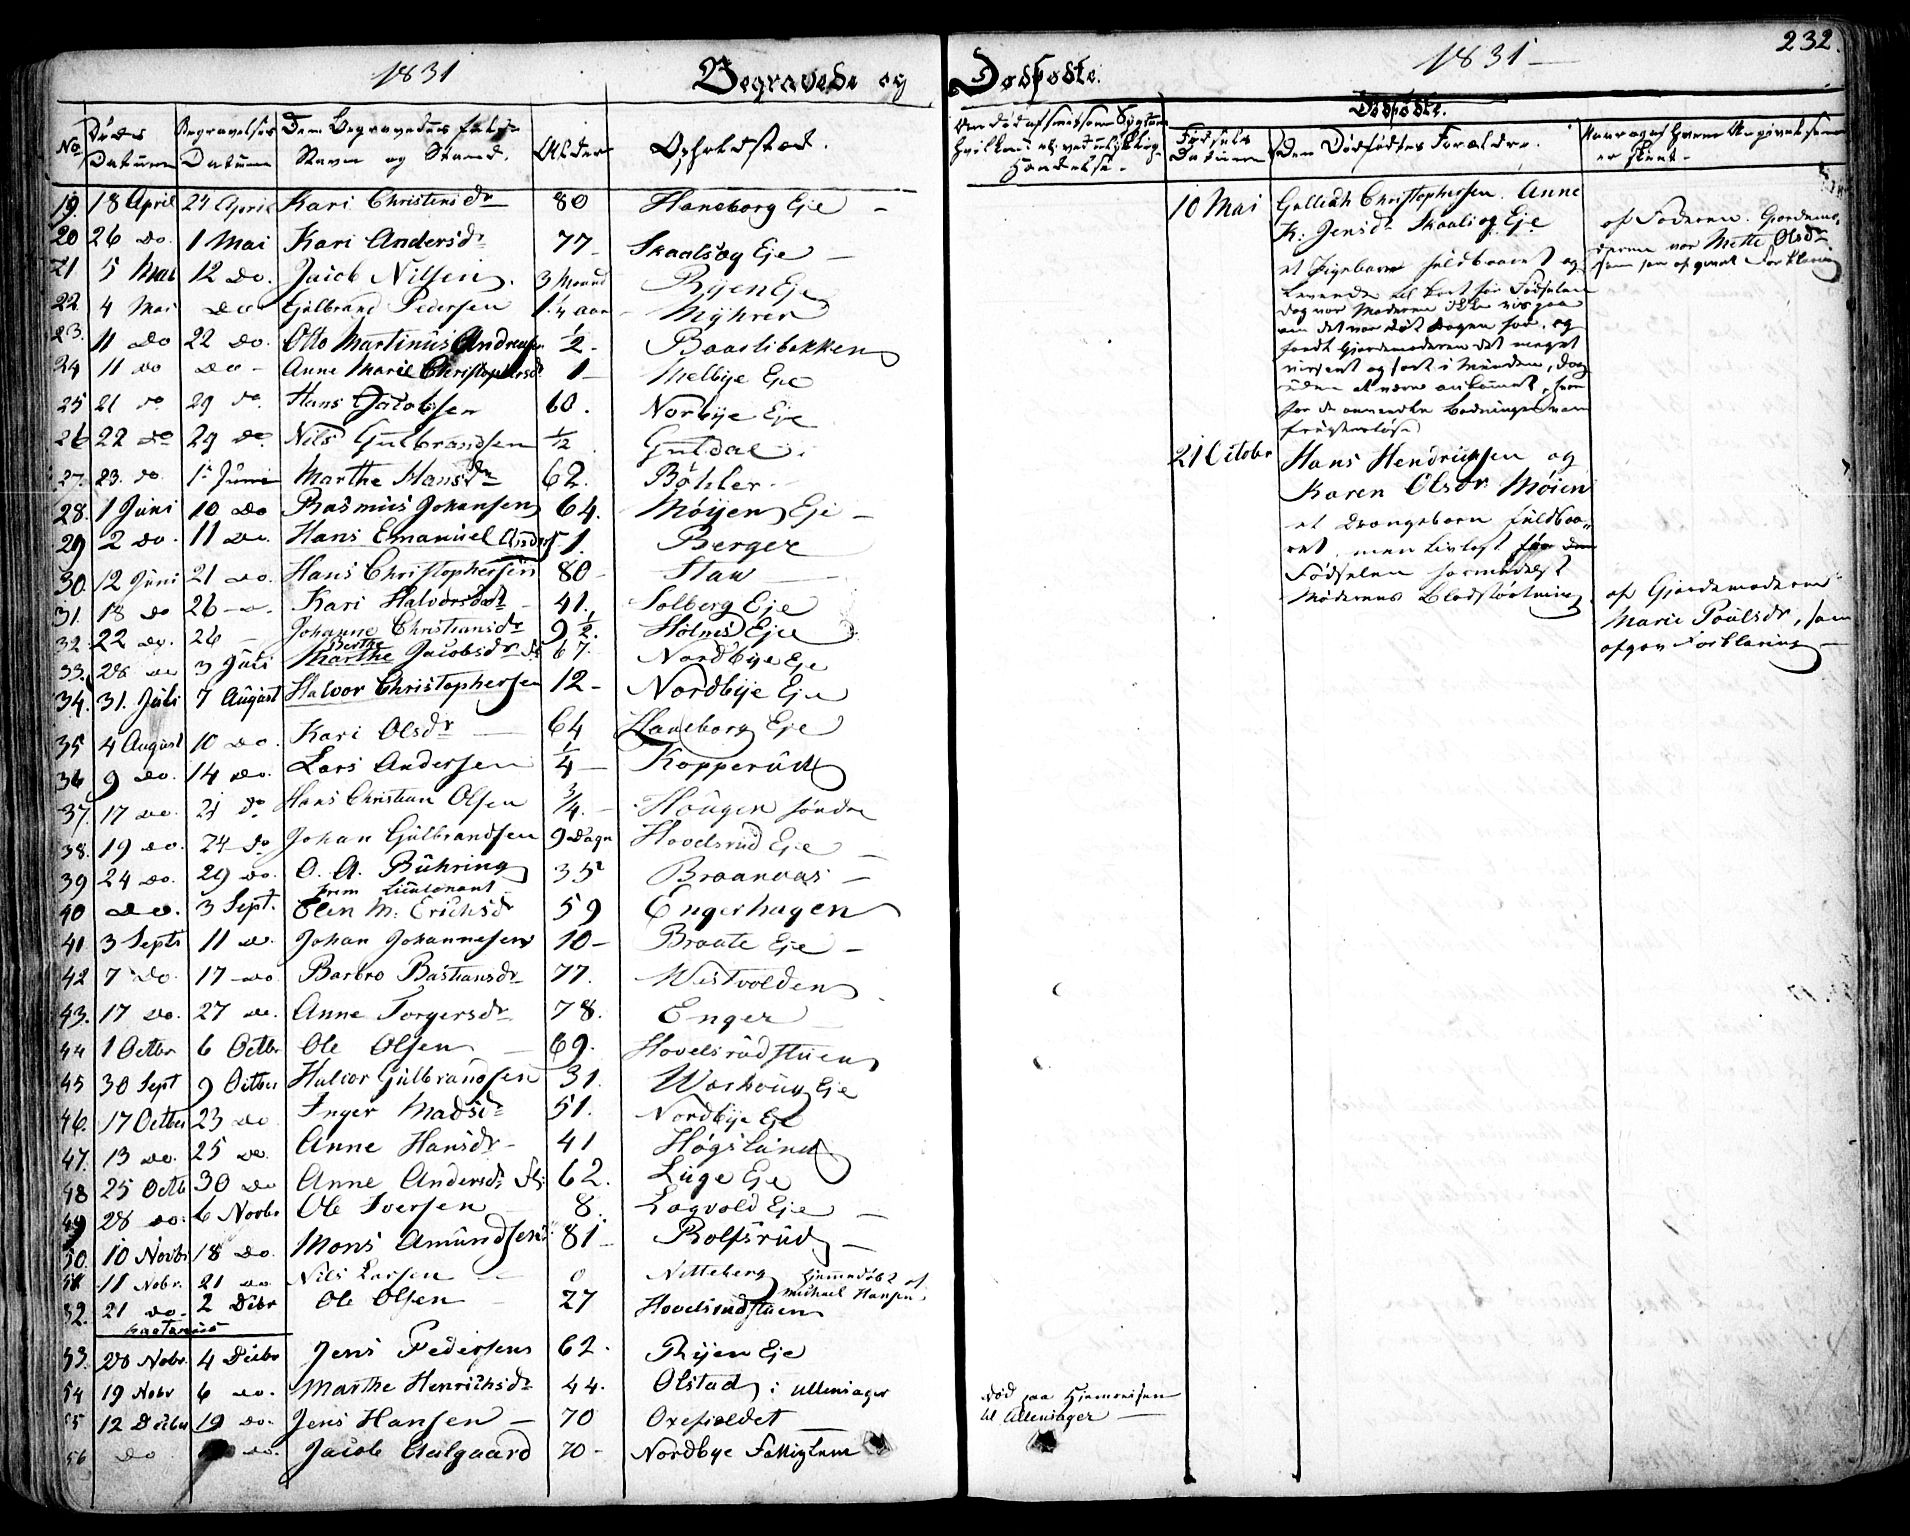 1831 Begravede og Dødfødte. 1831 232.
No Døds Datum Begravelses Datum Dem Begravedes fulde Navn og Stand. Alder Opholdssted.
Dødfødte.
Fødsels Datum Den Dødfødtes Forældre.
19. 18 April 24 April Kari Christensdr 80 Haneborg Eje
20 26 do. 1 Mai Kari Andersdr 77 Skaalsøg Eje
21 5 Mai 12 do. Jacob Nilsen 3 Maaned Ryen Eje
22 4 Mai do Gulbrand Pedersen 1 1/4 aar Myhrer
23. 11 do 22 do. Otto Martinus Andreasen 1/2 Baastibakken
24 11 do do Anne Marie Christophersdr 1 Melbye Eje
25 21 do 29 do. Hans Jacobsen 60. Norbye Eje
26 22 do 29 do. Nils Gulbrandsen 1/2 Guldal
27. 23. do. 1 Juni Marthe Hansdr 62. Bøhler
28. 1 Juni 10 do Rasmus Johansen 64. Møijen Eje
29 2 do. 11 do. Hans Emanuel Anders 1. Berger
30. 12 Juni 21 do. Hans Christophersen 80 Staw
31. 18 do 26 do. Kari Halvorsdatr 41. Solberg Eje
32. 22 do. 26 Johanne Christiansdr 9 1/2. Holmes Eje
33. 28 do 3 Juli Berthe
Marthe Jacobsdr 67. Nordbye Eje
34. 31. Juli 7 August Halvor Christophersen 12 Nordbye Eje
35 4 August 10 do. Kari Olsdr 64 Haneborg Eje
36 9 do. 14 do. Lars Andersen 1/4 Kopperud
37. 17 do. 21 do Hans Christian Olsen 3/4. Hougen søndre
38. 19 do. 24 do Johan Gulbrandsen 9 Dage Hovelsrud Eje
39 24 do. 29 do. O. A. Bühring 35 Braanaas
Prem Lieutenant
40 do. 3 Sept. Elen M. Erichsdr 59 Engerhagen
41. 3 Septr 11 do. Johan Johannesen 10 Braate Eje
42 7 do. 17 do Barbro Bastiansdr 77. Westvolden
43. 17 do. 27 do. Anne Torgersdr 78. Enger
44 1 Octbr 6 Octbr Ole Olsen 69. Hovelsrudstuen
45 30 Sept 9 Octber Halvor Gulbrandsen 31. Warhoug Eje
46. 17 Octber 23 do Inger Madsdr 51. Nordbye Eje
47. 13 do. 25 do. Anne Hansdr 41 Høgslund
48 25 Octb 30 do Anne Andersdr 62. Luge Eje
49 28 do. 6 Novbr Ole Iversen 8. Lagvold Eje
50. 10 Novbr 18 do. Mons Amundsen 81 Rolfsrud
51 11 Nobr. 21 do Nils Larsen 0 Nitteberg hjemmedøbt af
Michael Hansen
52. 21 do. 2 Decbr Ole Olsen 27 Hovelsrudstuen
53. 28 Nobr. 4 Decbr Jens Pedersen 62. Ryen Eje
54 19 Nobr 6 do. Marthe Henrichsdr 44. Olstad i Ullensager Død paa Hjemreisen
til Ullensager
55 12 Decbr 19 do. Jens Hansen 70 Oxefieldet
56 do do. Jacob Aalgaard 70 Nordbye Fattiglem
10 Mai Golliath Christophersen. Anne
K. Jensdr Skaalsøg Eje
et Pigebarn fuldbaaret og
Levende til kort før Fødselen
dog var Moderen ikke vis paa
om det var død Dagen før, og
fandt Gjordemoderen det meget
af Faderen. Gjordemo-
deren var Mette Olsdr
som har afgivet Forklaring
21 October Hans Hendrichsen og
Karen Olsdr Møien
et Drengebarn fuldbaa-
ret, men livløst før den
Fødselen formedelst
Moderens Blodstyrtning
af Gjordemoderen
Marie Poulsdr, som
afgav Forklaring